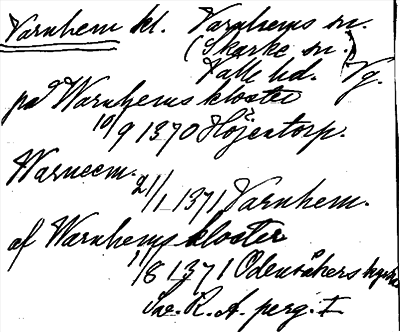 Varnhem kl. Varnhems sn.
(Skarke sn.)
Valle hd. Vg.
på Warnhems kloster
10/9 1370 Höjentorp.
Warneem.
21/1 1371 Varnhem.
af Warnhems kloster
11/8 1371 Odensåkers kyrka
Sv. R. A. perg. I